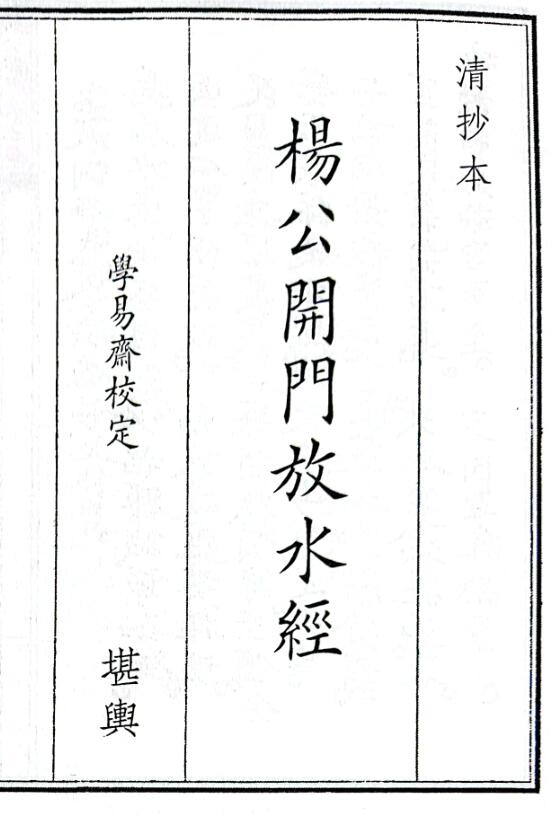 清抄本
楊公開門放水經
學易齋校定
堪輿